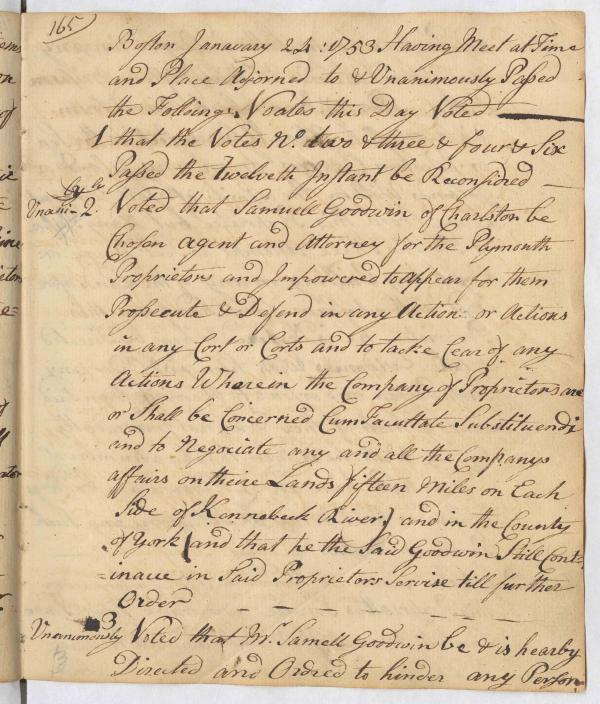 165
Boston Janavary 24: 1753 Having Meet at Time
and Place Adjorned to & Unanimously Passed
the Folloing Voates this Day Voted
1 that the Votes No. two & three & four & Six
Passed the twelveth Instant be Reconsidred
Unani= 2. Voted that Samuell Goodwin of Charlston be
Chosen agent and Attorney for the Plymouth
Proprietors and Impowered to Appear for them
Prosecute & Defend in any Action or Actions
in any Cort or Corts and to tacke Cear of any
Actions Wherein the Company of Proprietors are
or Shall be Concerned Cum Facultate Substituendi
and to Negociate any and all the Companys
affairs on theire Lands fifteen Miles on Each
Side of Kennebeck River) and in the County
of York (and that he the Said Goodwin Still Cont=
=inaue in Said Proprietors Servise till further
Order
Unanimously 3 Voted that Mr. Samell Goodwin be & is hearby
Directed and Ordred to hinder any Person